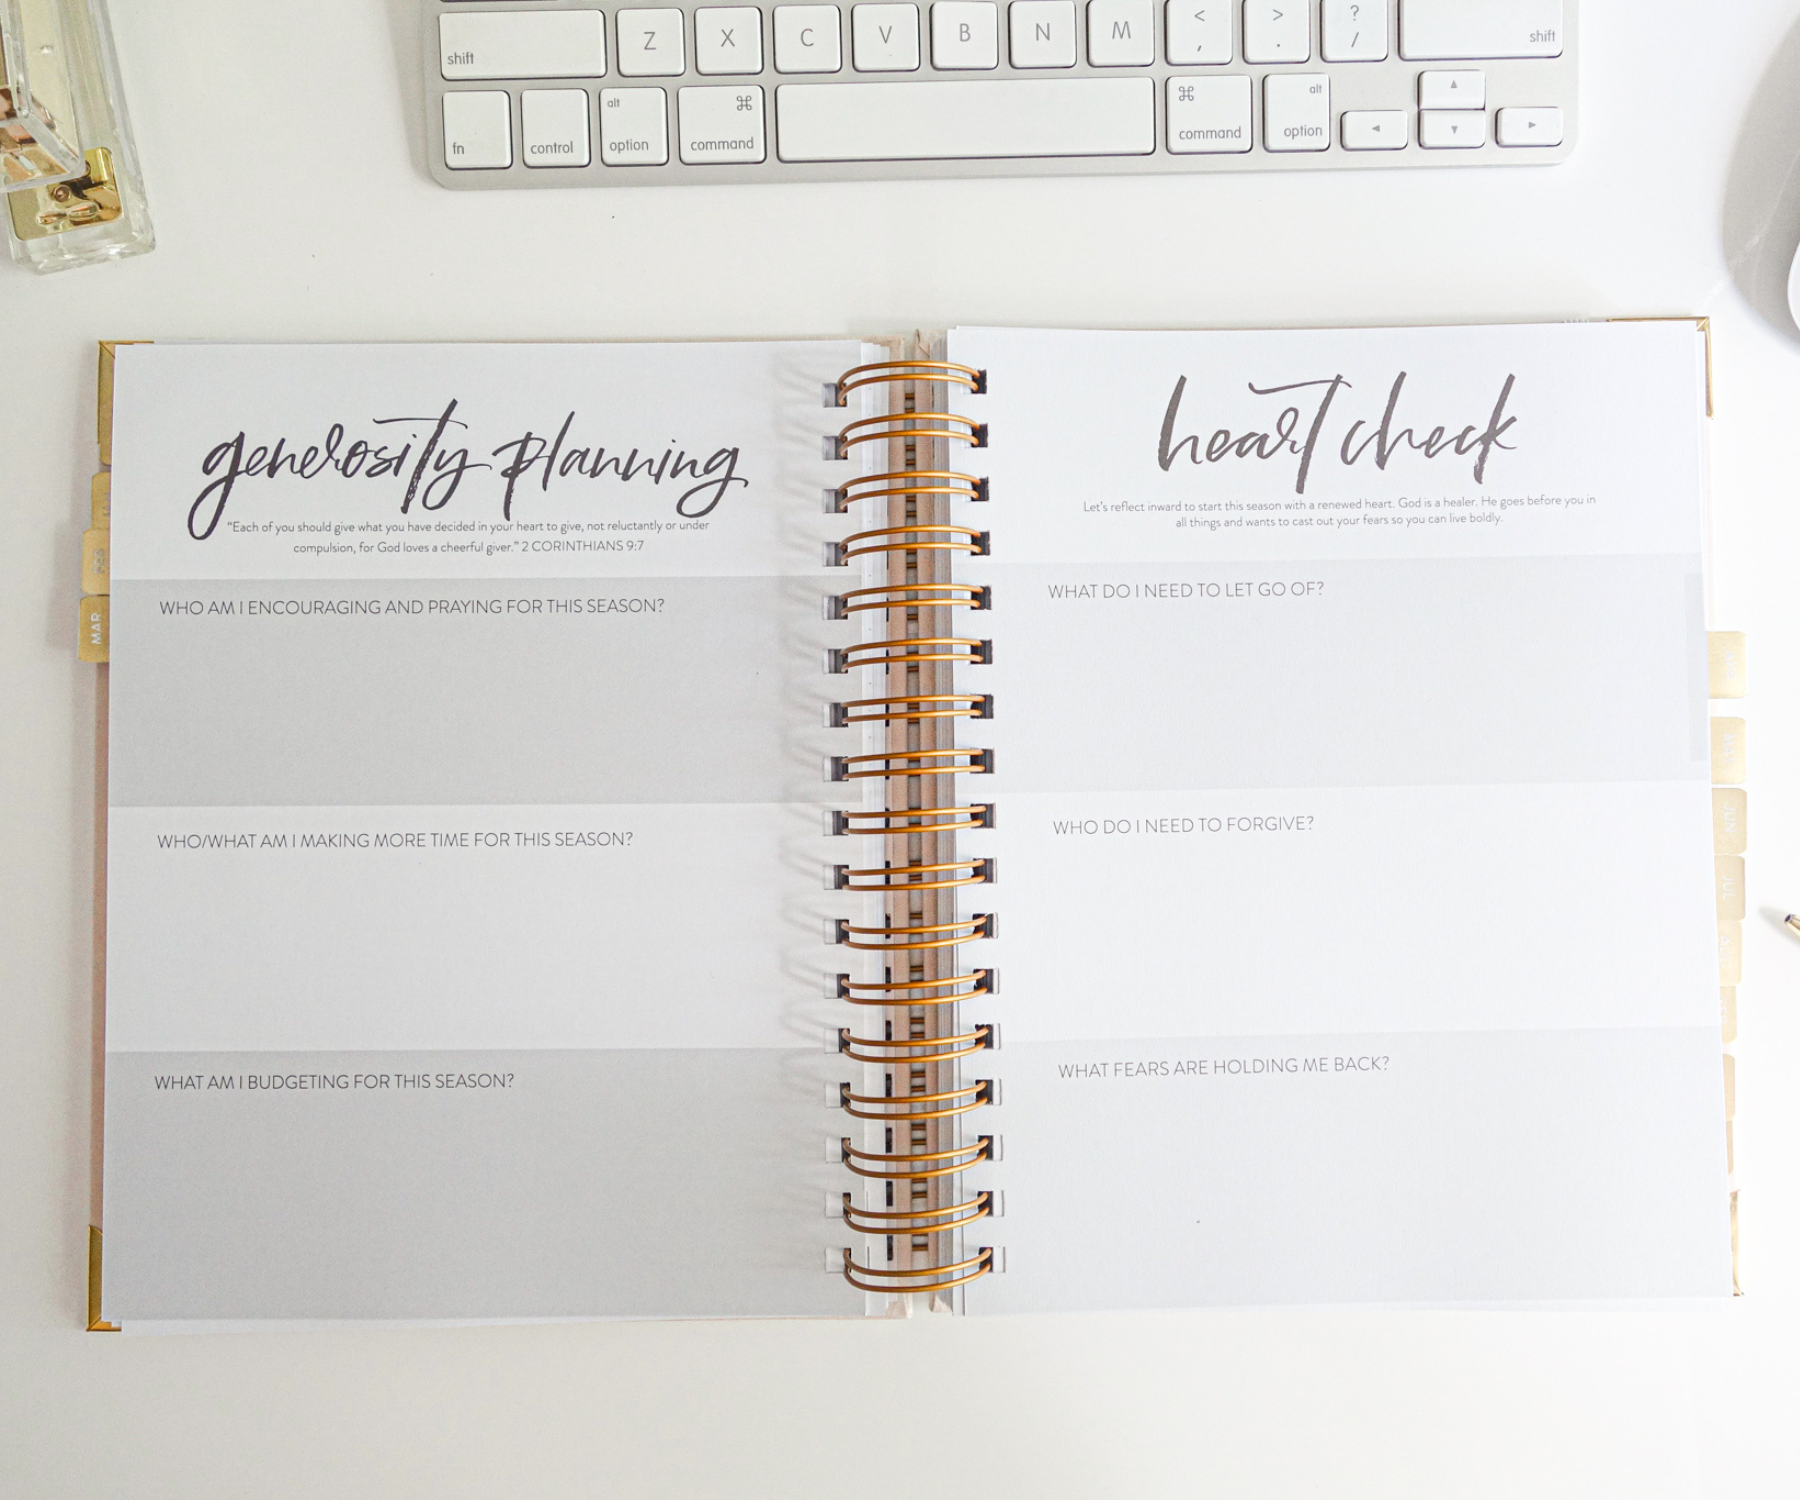 shift Z X C V B N M < , > . ? / shift
fn control alt option ⌘ command ⌘ command alt option ◄ ▲ ▼ ►
generosity planning
"Each of you should give what you have decided in your heart to give, not reluctantly or under
compulsion, for God loves a cheerful giver." 2 CORINTHIANS 9:7
WHO AM I ENCOURAGING AND PRAYING FOR THIS SEASON?
WHO/WHAT AM I MAKING MORE TIME FOR THIS SEASON?
WHAT AM I BUDGETING FOR THIS SEASON?
FEB
MAR
heart check
Let's reflect inward to start this season with a renewed heart. God is a healer. He goes before you in
all things and wants to cast out your fears so you can live boldly.
WHAT DO I NEED TO LET GO OF?
WHO DO I NEED TO FORGIVE?
WHAT FEARS ARE HOLDING ME BACK?
MAY
JUN
JUL